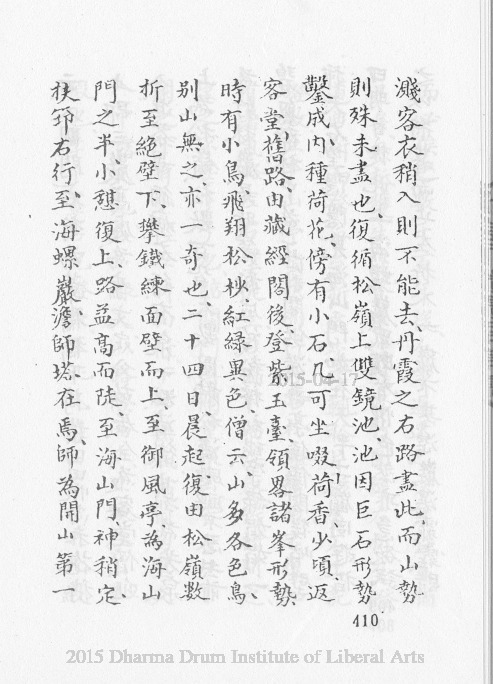 濺客衣稍入則不能去、丹霞之右路盡此、而山勢
則殊未盡也、復循松嶺上雙鏡池、池因巨石形勢
鑿成、內種荷花、傍有小石几可坐啜荷香、少頃、返
客堂舊路、由藏經閣後、登紫玉臺、領畧諸峯形勢、
時有小鳥、飛翔松杪、紅綠異色、僧云、山多各色鳥、
別山無之、亦一奇也、二十四日、晨起、復由松嶺數
折至絕壁下、攀鐵練面壁而上、至御風亭、為海山
門之半、小憩復上、路益高而陡、至海山門、神稍定、
扶筇右行、至海螺巖、澹師塔在焉、師為開山第一
410
2015-04-17
2015 Dharma Drum Institute of Liberal Arts